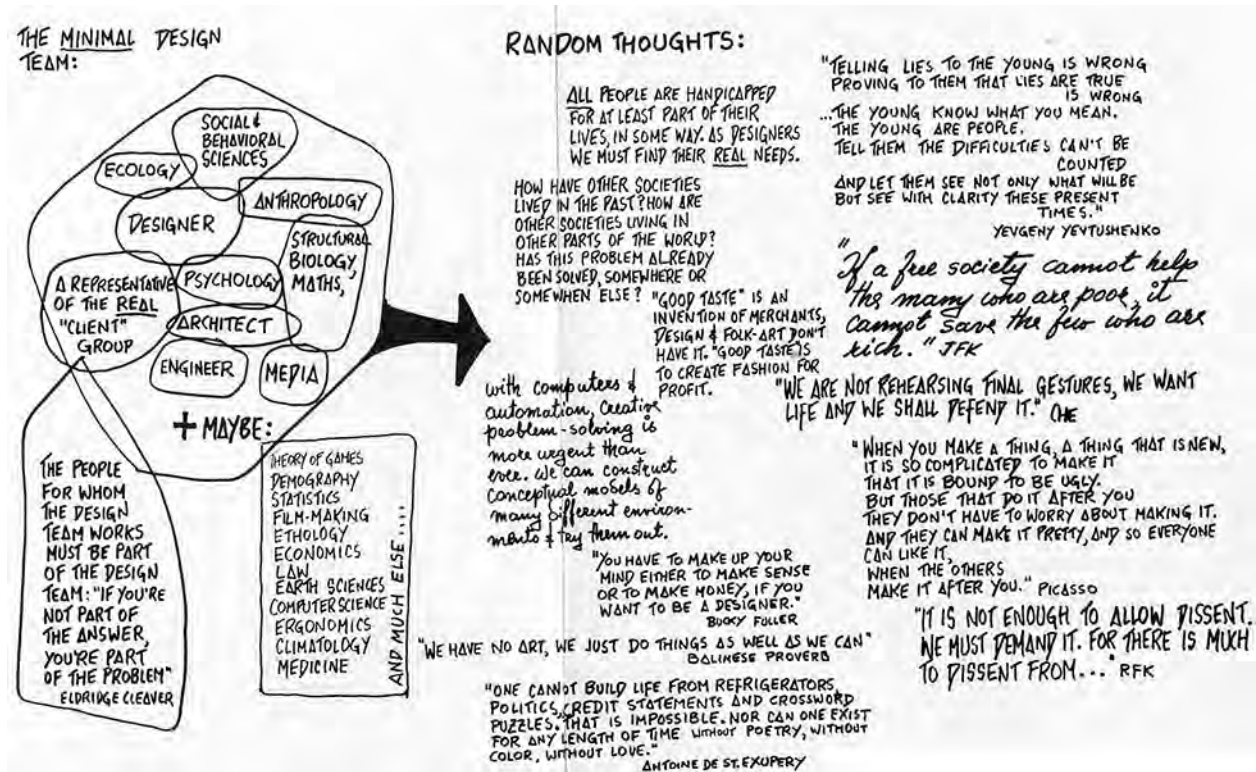 THE MINIMAL DESIGN
TEAM:
SOCIAL &
BEHAVIORAL
SCIENCES
ECOLOGY
ANTHROPOLOGY
DESIGNER
STRUCTURAL
BIOLOGY,
MATHS,
A REPRESENTATIVE
OF THE REAL
"CLIENT"
GROUP
PSYCHOLOGY
ARCHITECT
ENGINEER
MEDIA
+ MAYBE:
THE PEOPLE
FOR WHOM
THE DESIGN
TEAM WORKS
MUST BE PART
OF THE DESIGN
TEAM: "IF YOU'RE
NOT PART OF
THE ANSWER,
YOU'RE PART
OF THE PROBLEM"
ELDRIDGE CLEAVER
THEORY OF GAMES
DEMOGRAPHY
STATISTICS
FILM-MAKING
ETHOLOGY
ECONOMICS
LAW
EARTH SCIENCES
COMPUTER SCIENCE
ERGONOMICS
CLIMATOLOGY
MEDICINE
AND MUCH ELSE....
RANDOM THOUGHTS:
ALL PEOPLE ARE HANDICAPPED
FOR AT LEAST PART OF THEIR
LIVES, IN SOME WAY. AS DESIGNERS
WE MUST FIND THEIR REAL NEEDS.
HOW HAVE OTHER SOCIETIES
LIVED IN THE PAST? HOW ARE
OTHER SOCIETIES LIVING IN
OTHER PARTS OF THE WORLD?
HAS THIS PROBLEM ALREADY
BEEN SOLVED, SOMEWHERE OR
SOMEWHEN ELSE?
"GOOD TASTE" IS AN
INVENTION OF MERCHANTS,
DESIGN & FOLK-ART DON'T
HAVE IT. "GOOD TASTE IS
TO CREATE FASHION FOR
PROFIT.
with computers &
automation, creative
problem-solving is
more urgent than
ever. we can construct
conceptual models of
many different environ-
ments & try them out.
"YOU HAVE TO MAKE UP YOUR
MIND EITHER TO MAKE SENSE
OR TO MAKE MONEY, IF YOU
WANT TO BE A DESIGNER."
BUCKY FULLER
"WE HAVE NO ART, WE JUST DO THINGS AS WELL AS WE CAN"
BALINESE PROVERB
"ONE CANNOT BUILD LIFE FROM REFRIGERATORS,
POLITICS, CREDIT STATEMENTS AND CROSSWORD
PUZZLES." THAT IS IMPOSSIBLE. NOR CAN ONE EXIST
FOR ANY LENGTH OF TIME WITHOUT POETRY, WITHOUT
COLOR, WITHOUT LOVE."
ANTOINE DE ST. EXUPERY
"TELLING LIES TO THE YOUNG IS WRONG
PROVING TO THEM THAT LIES ARE TRUE
IS WRONG
...THE YOUNG KNOW WHAT YOU MEAN.
THE YOUNG ARE PEOPLE.
TELL THEM THE DIFFICULTIES CAN'T BE
COUNTED
AND LET THEM SEE NOT ONLY WHAT WILL BE
BUT SEE WITH CLARITY THESE PRESENT
TIMES."
YEVGENY YEVTUSHENKO
"If a free society cannot help
the many who are poor, it
cannot save the few who are
rich." JFK
"WE ARE NOT REHEARSING FINAL GESTURES, WE WANT
LIFE AND WE SHALL DEFEND IT." CHE
"WHEN YOU MAKE A THING, A THING THAT IS NEW,
IT IS SO COMPLICATED TO MAKE IT
THAT IT IS BOUND TO BE UGLY.
BUT THOSE THAT DO IT AFTER YOU
THEY DON'T HAVE TO WORRY ABOUT MAKING IT.
AND THEY CAN MAKE IT PRETTY, AND SO EVERYONE
CAN LIKE IT,
WHEN THE OTHERS
MAKE IT AFTER YOU." PICASSO
"IT IS NOT ENOUGH TO ALLOW DISSENT.
WE MUST DEMAND IT. FOR THERE IS MUCH
TO DISSENT FROM... " RFK